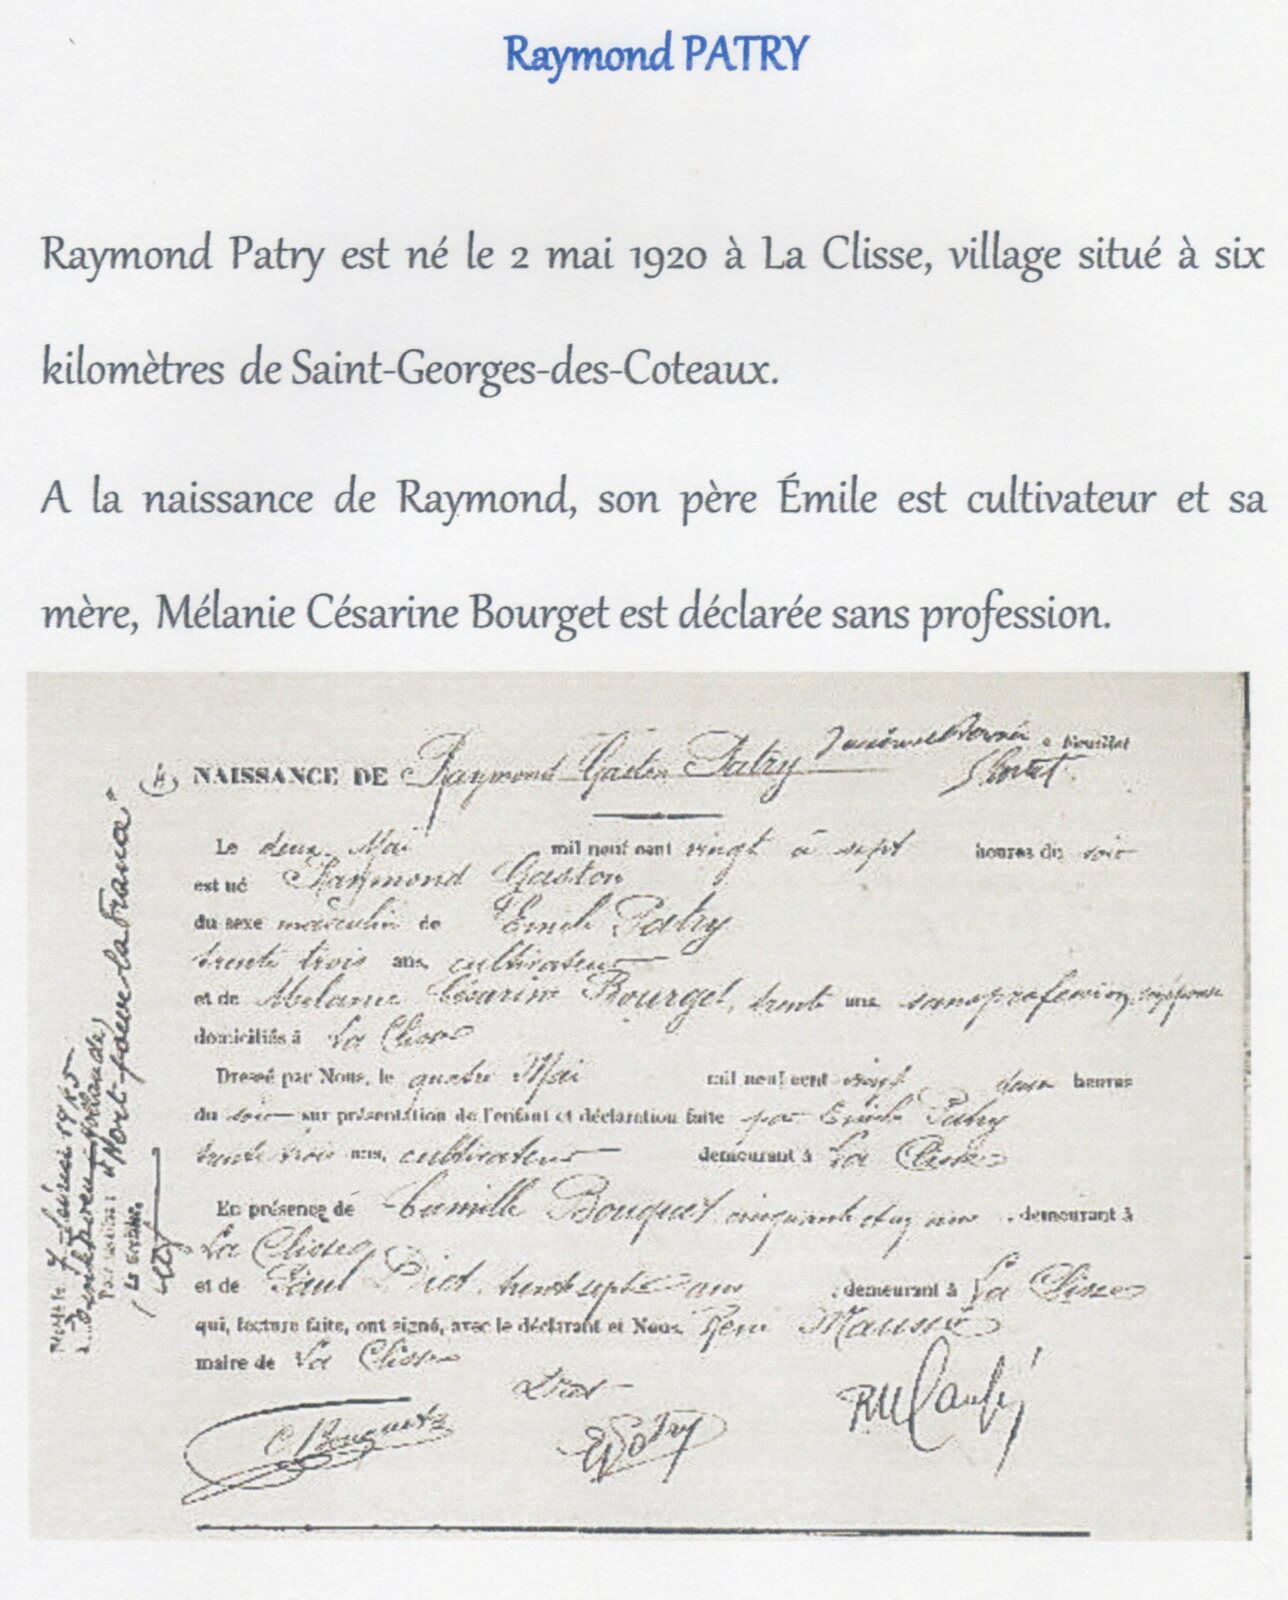 Raymond PATRY
Raymond Patry est né le 2 mai 1920 à La Clisse, village situé à six
kilomètres de Saint-Georges-des-Coteaux.
A la naissance de Raymond, son père Émile est cultivateur et sa
mère, Mélanie Césarine Bourget est déclarée sans profession.
NAISSANCE DE Raymond Gaston Patry
Le deux Mai mil neuf cent vingt à sept heures du soir
est né Raymond Gaston
du sexe masculin de Emile Patry
trente trois ans, cultivateur
et de Mélanie Césarine Bourget, trente ans sans profession, son épouse
domiciliés à La Clisse
Dressé par Nous, le quatre Mai mil neuf cent vingt heures
du soir sur présentation de l'enfant et déclaration faite par Emile Patry
trente trois ans, cultivateur demeurant à La Clisse
En présence de Camille Bouquet cinquante et un ans, demeurant à
La Clisse
et de Paul Diet trente sept ans, demeurant à La Clisse
qui, lecture faite, ont signé, avec le déclarant et Nous, René
maire de La Clisse
C Bouquet
E Patry
"Mort pour la France"